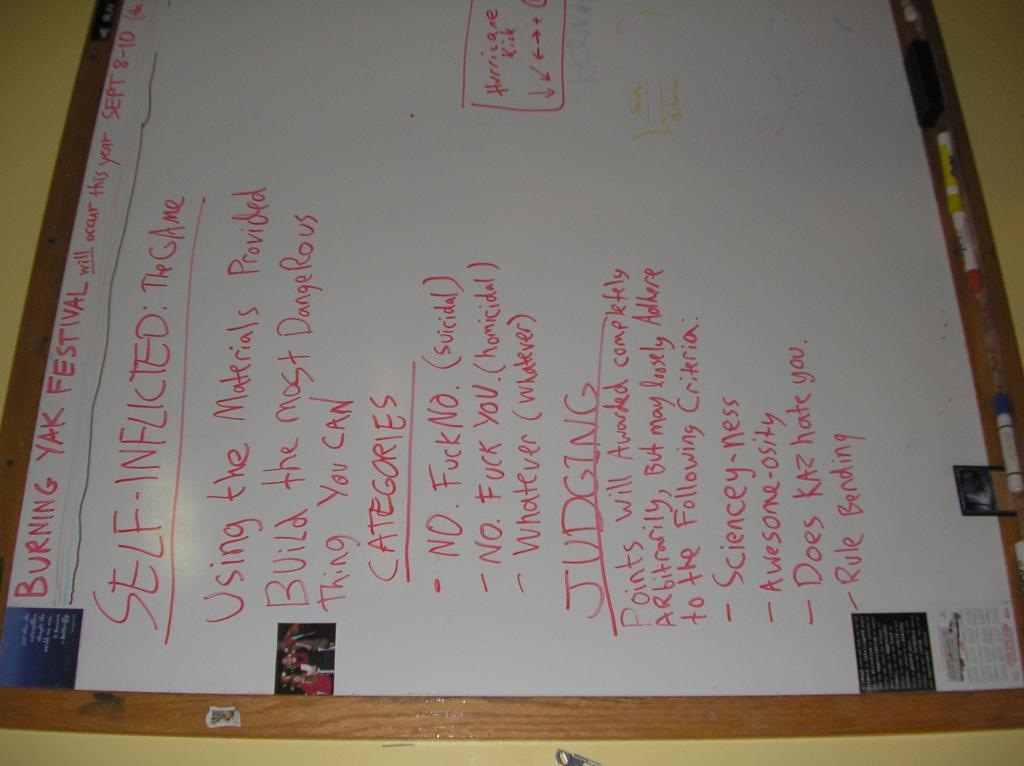 BURNING YAK FESTIVAL will occur this year SEPT 8-10 (the
SELF-INFLICTED: The GAMe
Using the Materials Provided
BUild the most DangeRous
Thing You CAN
CATEGORIES
• NO. FuckNO. (suicidal)
- NO. FUCK YOU. (homicidal)
- Whatever (whatever)
JUDGING
Points Will Awarded completely
ARbitrarily, But may loosely Adhere
to the Following Criteria:
- Sciencey-ness
- Awesome-osity
- Does KAZ hate you.
- Rule Bending
Hurricane
Kick
↓ ↙ ← → +